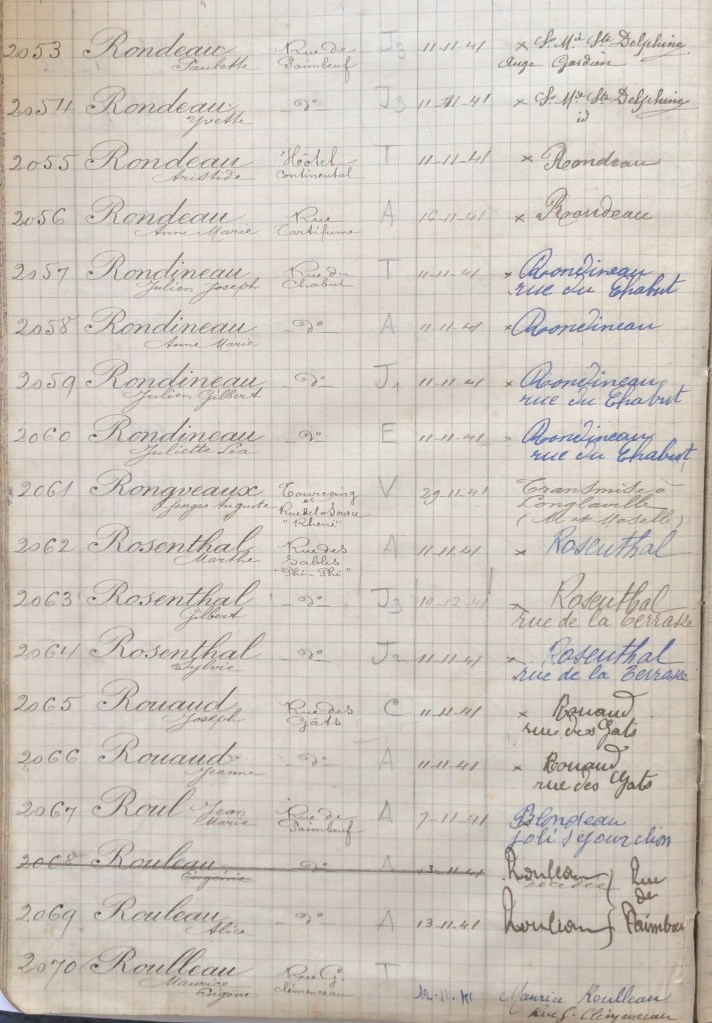 2053 Rondeau Rue de J3 11-11-41 × Sr Mie Ste Delphine
Paulette Paimbœuf Ange Gardien
2054 Rondeau do J3 11-11-41 × Sr Mie Ste Delphine
Yvette id
2055 Rondeau Hôtel T 11-11-41 × Rondeau
Aristide Continental
2056 Rondeau Rue A 16-11-41 × Rondeau
Anne Marie Tartifume
2057 Rondineau Rue du T 11-11-41 × Rondineau
Julien Joseph Chabut rue du Chabut
2058 Rondineau do A 11-11-41 × Rondineau
Anne Marie
2059 Rondineau do J1 11-11-41 × Rondineau
Julien Gilbert rue du Chabut
2060 Rondineau do E 11-11-41 × Rondineau
Juliette Léa rue du Chabut
2061 Rongveaux Tourcoing V 29-11-41 Transmise à
Georges Auguste et Longlaville
Rue de la Source (M et Moselle)
2062 Rosenthal Rue des A 11-11-41 × Rosenthal
Marthe Sables
"Phi-Phi"
2063 Rosenthal do J3 10-12-41 × Rosenthal
Gilbert rue de la Terrasse
2064 Rosenthal do J2 11-11-41 × Rosenthal
Sylvie rue de la Terrasse
2065 Rouaud Rue des C 11-11-41 × Rouaud
Joseph Gâts rue des Gats
2066 Rouaud do A 11-11-41 × Rouaud
Jeanne rue des Gats
2067 Roul Jean Rue de A 7-11-41 Blondeau
Marie Paimbœuf
2068 Rouleau do A 13-11-41 Rouleau Rue
Eugénie décédée de
2069 Rouleau do A 13-11-41 Rouleau Paimbœu
Alice
2070 Roulleau Rue G. T 12-11-41 Maurice Roulleau
Maurice Clémenceau Rue G. Clémenceau
Eugène